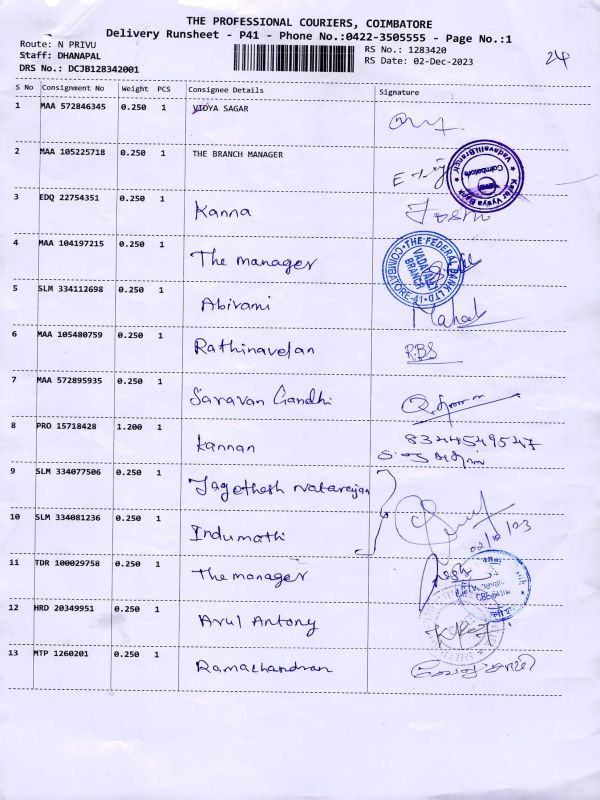 THE PROFESSIONAL COURIERS, COIMBATORE
Delivery Runsheet - P41 - Phone No.:0422-3505555 - Page No.:1
Route: N PRIVU RS No.: 1283420
Staff: DHANAPAL RS Date: 02-Dec-2023
DRS No.: DCJB128342001 24
S No Consignment No Weight PCS Consignee Details Signature
1 MAA 572846345 0.250 1 VIDYA SAGAR
2 MAA 105225718 0.250 1 THE BRANCH MANAGER
Karur Vysya Bank
Vadavalli Branch
Coimbatore
3 EDQ 22754351 0.250 1 Kanna
4 MAA 104197215 0.250 1 The manager
THE FEDERAL BANK LTD
VADAVALLI
BRANCH
COIMBATORE-41
5 SLM 334112698 0.250 1 Abirami
6 MAA 105480759 0.250 1 Rathinavelan R.B.S
7 MAA 572895935 0.250 1 Saravan Gandhi
8 PRO 15718428 1.200 1 Kannan 8344549547
9 SLM 334077506 0.250 1 Jagethesh Natarajan
10 SLM 334081236 0.250 1 Indumathi 02/12/23
11 TDR 100029758 0.250 1 The manager
12 HRD 20349951 0.250 1 Arul Antony
13 MTP 1260201 0.250 1 Ramachandran